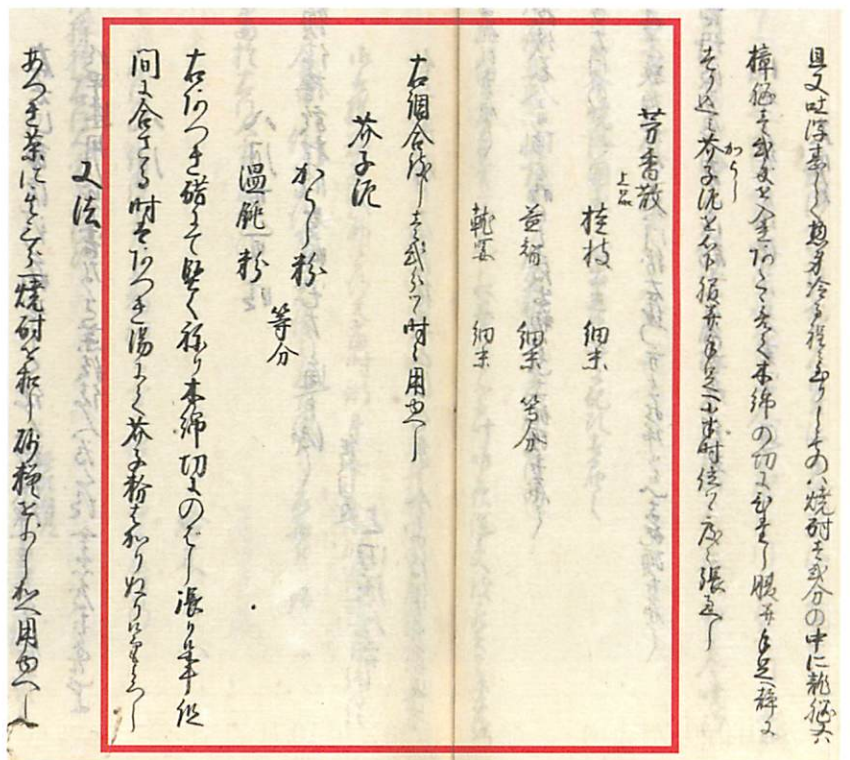 且又吐瀉甚しく惣身冷る程に至りしものハ焼酎壱弐合の中に龍脳又
樟脳壱弐匁を入れあたゝめ木綿の切にひたし腹并手足へ静に
すり込芥子泥を心下腹并手足へ小半時位ツゝ度々張るへし
からし
芳香散
上品
桂枝 細末
益智 細末 等分
乾姜 細末
右調合致し壱弐分ツゝ時々用ゆへし
芥子泥
からし粉
等分
温飩粉
右あつき醋にて堅く祢り木綿切にのはし張り候事 但
間に合さる時はあつき湯にて芥子粉計りねり候てもよろし
又法
あつき茶に其三分一焼酎を和し砂糖を少し加へ用ゆへし